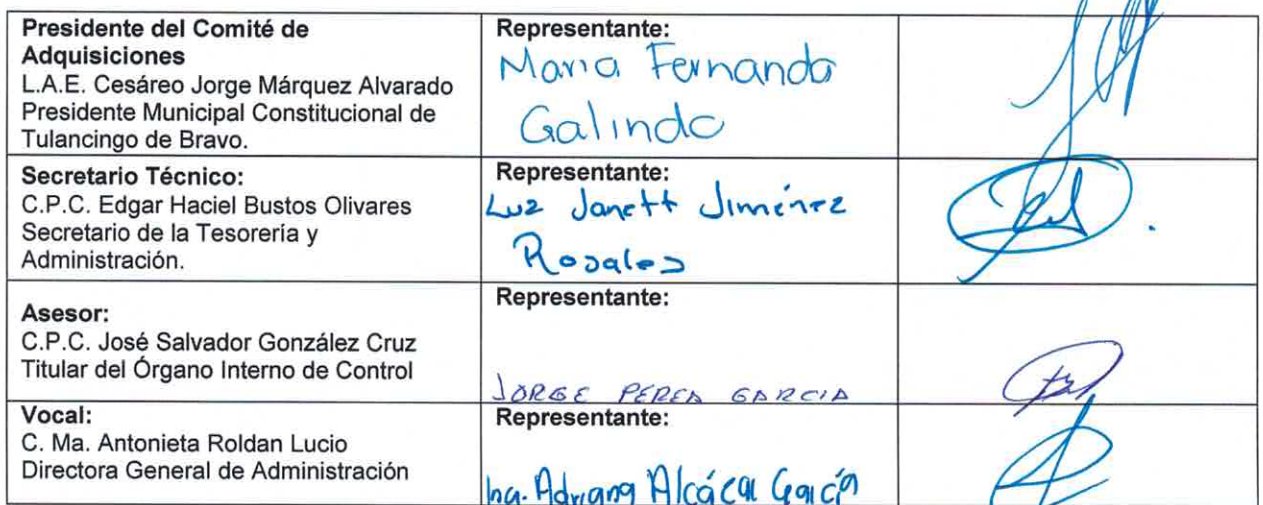 Presidente del Comité de
Adquisiciones
L.A.E. Cesáreo Jorge Márquez Alvarado
Presidente Municipal Constitucional de
Tulancingo de Bravo.
Representante:
Maria Fernanda
Galindo
Secretario Técnico:
C.P.C. Edgar Haciel Bustos Olivares
Secretario de la Tesorería y
Administración.
Representante:
Luz Janett Jiménez
Rosales
Asesor:
C.P.C. José Salvador González Cruz
Titular del Órgano Interno de Control
Representante:
JORGE PEREA GARCIA
Vocal:
C. Ma. Antonieta Roldan Lucio
Directora General de Administración
Representante:
Ing. Adriana Alcácar García